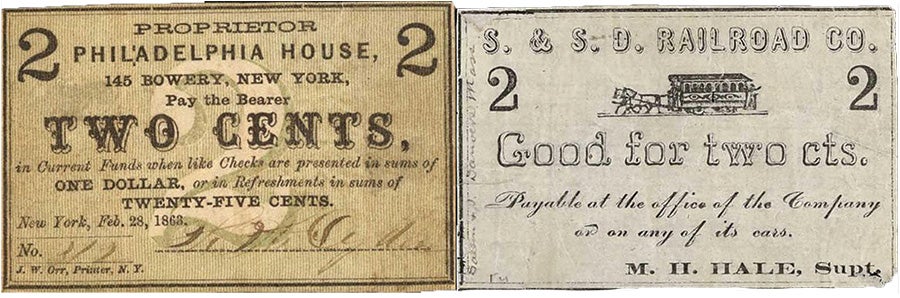 PROPRIETOR
2 PHIL'ADELPHIA HOUSE, 2
145 BOWERY, NEW YORK,
Pay the Bearer
TWO CENTS,
in Current Funds when like Checks are presented in sums of
ONE DOLLAR, or in Refreshments in sums of
TWENTY-FIVE CENTS.
New York, Feb. 28, 1863.
No.
J. W. Orr, Printer, N. Y.
S. & S. D. RAILROAD CO.
2 2
Good for two cts.
Payable at the office of the Company
or on any of its cars.
M. H. HALE, Supt.